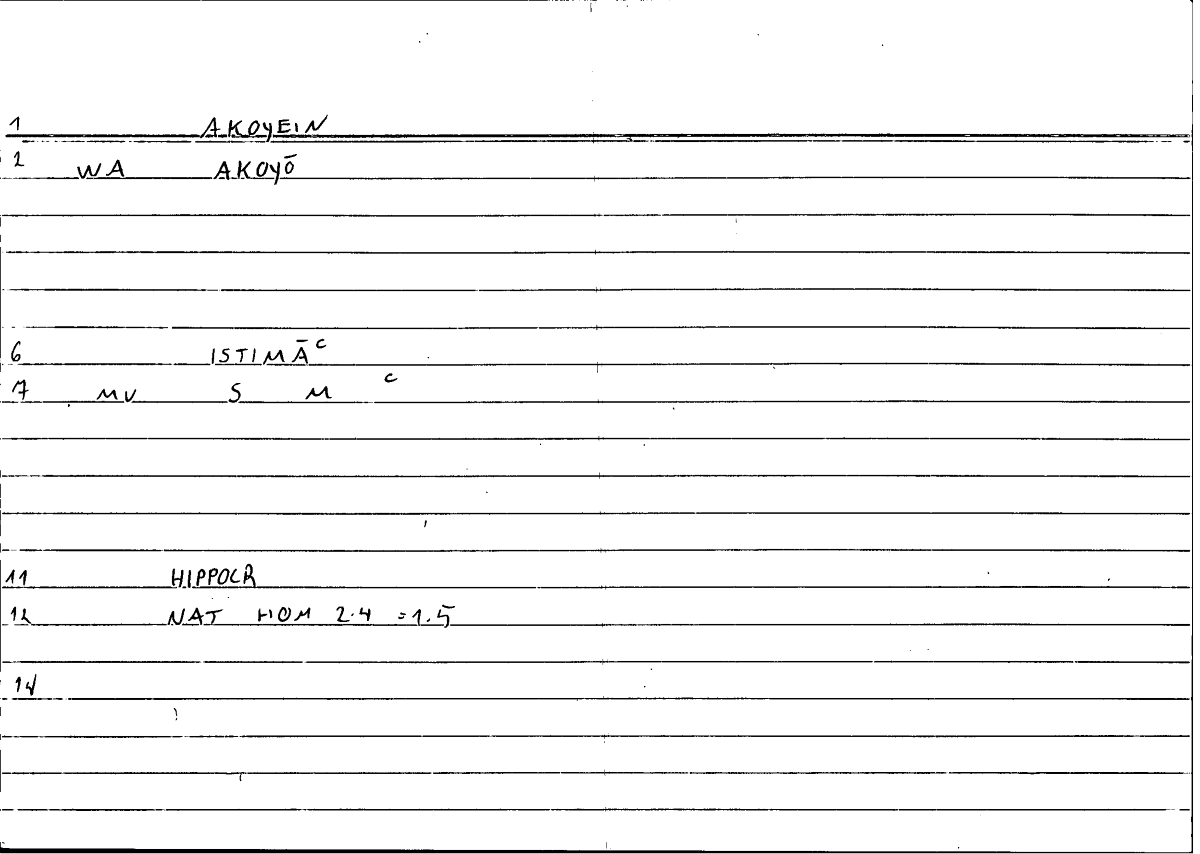 1 AKOYEIN
2 WA AKOYŌ
6 ISTIMĀᶜ
7 MV S M ᶜ
11 HIPPOCR
12 NAT HOM 2.4 =1.5
14